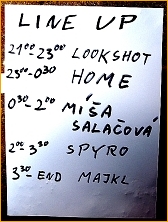 LINE UP
21⁰⁰-23⁰⁰ LOOKSHOT
23⁰⁰-0³⁰ HOME
0³⁰-2⁰⁰ MÍŠA
SALAČOVÁ
2⁰⁰-3³⁰ SPYRO
3³⁰-END MAJKL